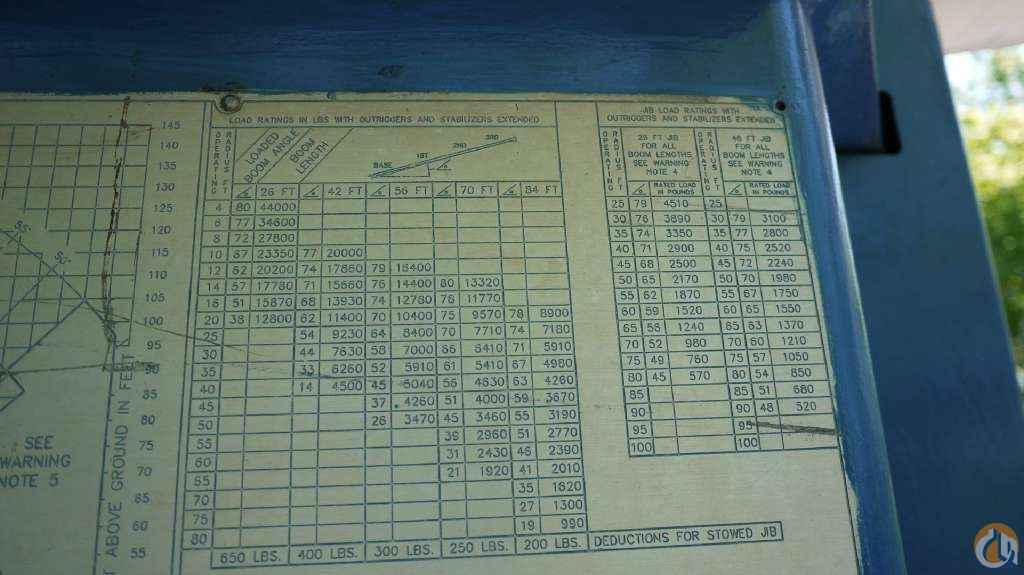 LOAD RATINGS IN LBS WITH OUTRIGGERS AND STABILIZERS EXTENDED
OPERATING RADIUS FT
LOADED BOOM ANGLE
BOOM LENGTH
BASE 1ST 2ND 3RD
26 FT 42 FT 56 FT 70 FT 84 FT
4 80 44000
6 77 34600
8 72 27800
10 67 23350 77 20000
12 62 20200 74 17860 79 16400
14 57 17780 71 15660 76 14400 80 13320
16 51 15870 68 13930 74 12780 78 11770
20 38 12800 62 11400 70 10400 75 9570 78 8900
25 54 9230 64 8400 70 7710 74 7180
30 44 7630 58 7000 66 6410 71 5910
35 33 6260 52 5910 61 5410 67 4980
40 14 4500 45 5040 56 4630 63 4260
45 37 4260 51 4000 59 3670
50 26 3470 45 3460 55 3190
55 39 2960 51 2770
60 31 2430 46 2390
65 21 1920 41 2010
70 35 1620
75 27 1300
80 19 990
650 LBS. 400 LBS. 300 LBS. 250 LBS. 200 LBS. DEDUCTIONS FOR STOWED JIB
JIB LOAD RATINGS WITH
OUTRIGGERS AND STABILIZERS EXTENDED
OPERATING RADIUS FT
FT JIB
FOR ALL
BOOM LENGTHS
SEE WARNING
NOTE 4
RATED LOAD
IN POUNDS
OPERATING RADIUS FT
FT JIB
FOR ALL
BOOM LENGTHS
SEE WARNING
NOTE 4
RATED LOAD
IN POUNDS
25 79 4510 25
30 76 3890 30 79 3100
35 74 3350 35 77 2800
40 71 2900 40 75 2520
45 68 2500 45 72 2240
50 65 2170 50 70 1980
55 62 1870 55 67 1750
60 59 1520 60 65 1550
65 56 1240 65 63 1370
70 52 980 70 60 1210
75 49 760 75 57 1050
80 45 570 80 54 850
85 85 51 680
90 90 48 520
95 95
100 100
145
140
135
130
125
120
115
110
105
100
95
90
85
80
75
70
65
60
55
ABOVE GROUND IN FEET
SEE
WARNING
NOTE 5